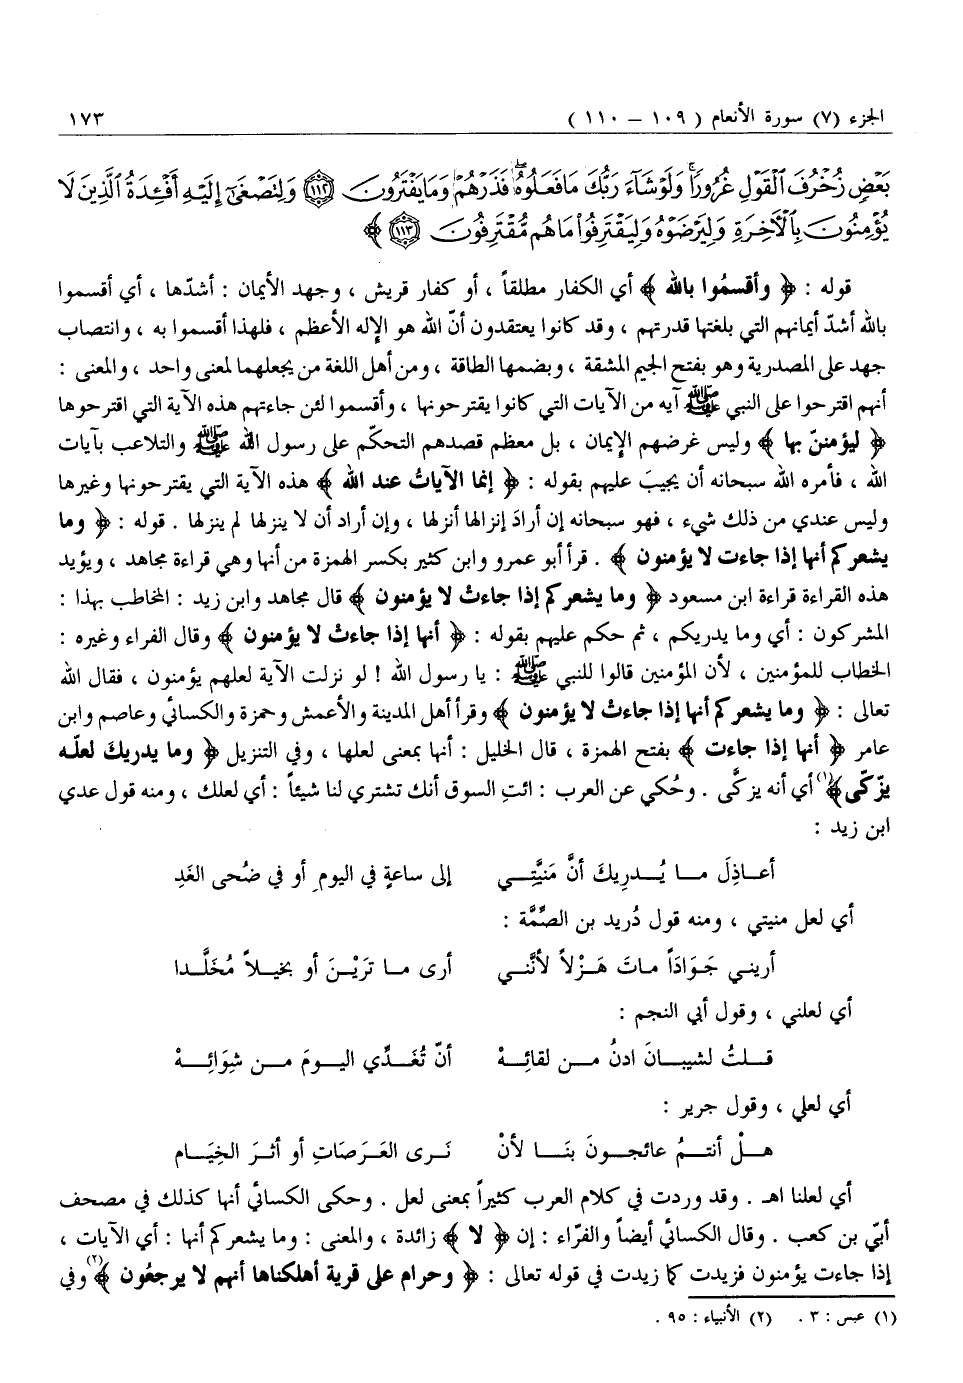 الجزء (٧) سورة الأنعام ( ١٠٩ – ١١٠ ) ١٧٣
بَعْضٍ زُخْرُفَ ٱلْقَوْلِ غُرُورًا وَلَوْ شَآءَ رَبُّكَ مَا فَعَلُوهُ فَذَرْهُمْ وَمَا يَفْتَرُونَ ١١٢ وَلِتَصْغَىٰٓ إِلَيْهِ أَفْـِٔدَةُ ٱلَّذِينَ لَا
يُؤْمِنُونَ بِٱلْأَخِرَةِ وَلِيَرْضَوْهُ وَلِيَقْتَرِفُوا۟ مَا هُم مُّقْتَرِفُونَ ١١٣ ﴾
قوله : ﴿ وأقسمُوا بالله ﴾ أي الكفار مطلقاً ، أو كفار قريش ، وجهد الأيمان : أشدّها ، أي أقسموا
بالله أشدّ أيمانهم التي بلغتها قدرتهم ، وقد كانوا يعتقدون أنّ الله هو الإله الأعظم ، فلهذا أقسموا به ، وانتصاب
جهد على المصدرية وهو بفتح الجيم المشقة ، وبضمها الطاقة ، ومن أهل اللغة من يجعلهما لمعنى واحد ، والمعنى :
أنهم اقترحوا على النبي ﷺ آيه من الآيات التي كانوا يقترحونها ، وأقسموا لئن جاءتهم هذه الآية التي اقترحوها
﴿ ليؤمننّ بها ﴾ وليس غرضهم الإيمان ، بل معظم قصدهم التحكّم على رسول الله ﷺ والتلاعب بآيات
الله ، فأمره الله سبحانه أن يجيبَ عليهم بقوله : ﴿ إنما الآياتُ عند الله ﴾ هذه الآية التي يقترحونها وغيرها
وليس عندي من ذلك شيء ، فهو سبحانه إن أرادَ إنزالها أنزلها ، وإن أراد أن لا ينزلها لم ينزلها . قوله : ﴿ وما
يشعركم أنها إذا جاءت لا يؤمنون ﴾ . قرأ أبو عمرو وابن كثير بكسر الهمزة من أنها وهي قراءة مجاهد ، ويؤيد
هذه القراءة قراءة ابن مسعود ﴿ وما يشعركم إذا جاءتْ لا يؤمنون ﴾ قال مجاهد وابن زيد : المخاطب بهذا :
المشركون : أي وما يدريكم ، ثم حكم عليهم بقوله : ﴿ أنها إذا جاءتْ لا يؤمنون ﴾ وقال الفراء وغيره :
الخطاب للمؤمنين ، لأن المؤمنين قالوا للنبي ﷺ : يا رسول الله ! لو نزلت الآية لعلهم يؤمنون ، فقال الله
تعالى : ﴿ وما يشعركم أنها إذا جاءتْ لا يؤمنون ﴾ وقرأ أهل المدينة والأعمش وحمزة والكسائي وعاصم وابن
عامر ﴿ أنها إذا جاءت ﴾ بفتح الهمزة ، قال الخليل : أنها بمعنى لعلها ، وفي التنزيل ﴿ وما يدريك لعلّه
يزّكّى﴾(١) أي أنه يزكَّى . وحُكي عن العرب : ائتِ السوق أنك تشتري لنا شيئاً : أي لعلك ، ومنه قول عدي
ابن زيد :
أعاذِلَ ما يُدرِيكَ أنَّ مَنيَّتِي إلى ساعةٍ في اليومِ أو في ضُحى الغَدِ
أي لعل منيتي ، ومنه قول دُريد بن الصِّمَّة :
أريني جَوَادَاً ماتَ هَزْلاً لأنَّني أرى ما تَرَيْنَ أو بخيلاً مُخَلَّدا
أي لعلني ، وقول أبي النجم :
قلتُ لشيبانَ ادنُ من لقائِهْ أنّ تُغَدِّي اليومَ من شِوَائِهْ
أي لعلي ، وقول جرير :
هلْ أنتمُ عائجونَ بنَا لأنْ نَرى العَرَصَاتِ أو أثرَ الخِيَام
أي لعلنا اهـ . وقد وردت في كلام العرب كثيراً بمعنى لعل . وحكى الكسائي أنها كذلك في مصحف
أبيّ بن كعب . وقال الكسائي أيضاً والفرّاء : إن ﴿ لا ﴾ زائدة ، والمعنى : وما يشعركم أنها : أي الآيات ،
إذا جاءت يؤمنون فزيدت كما زيدت في قوله تعالى : ﴿ وحرام على قرية أهلكناها أنهم لا يرجعُون ﴾(٢) وفي
(١) عبس : ٣ . (٢) الأنبياء : ٩٥ .